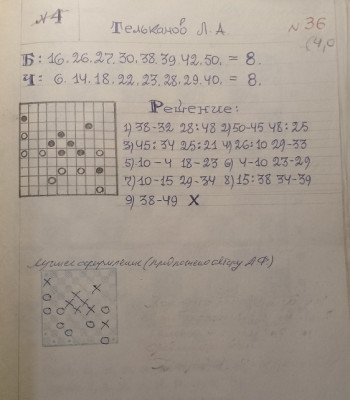 №4
Тельканов Л. А.
№ 36
(4,0
Б: 16. 26. 27. 30. 38. 39. 42. 50. = 8.
Ч: 6. 14. 18. 22. 23. 28. 29. 40. = 8.
Решение:
1) 38-32 28:48 2) 50-45 48:25
3) 45:34 25:21 4) 26:10 29-33
5) 10-4 18-23 6) 4-10 23-29
7) 10-15 29-34 8) 15:38 34-39
9) 38-49 X
Лучшее оформление (предложено автору А.Ф)